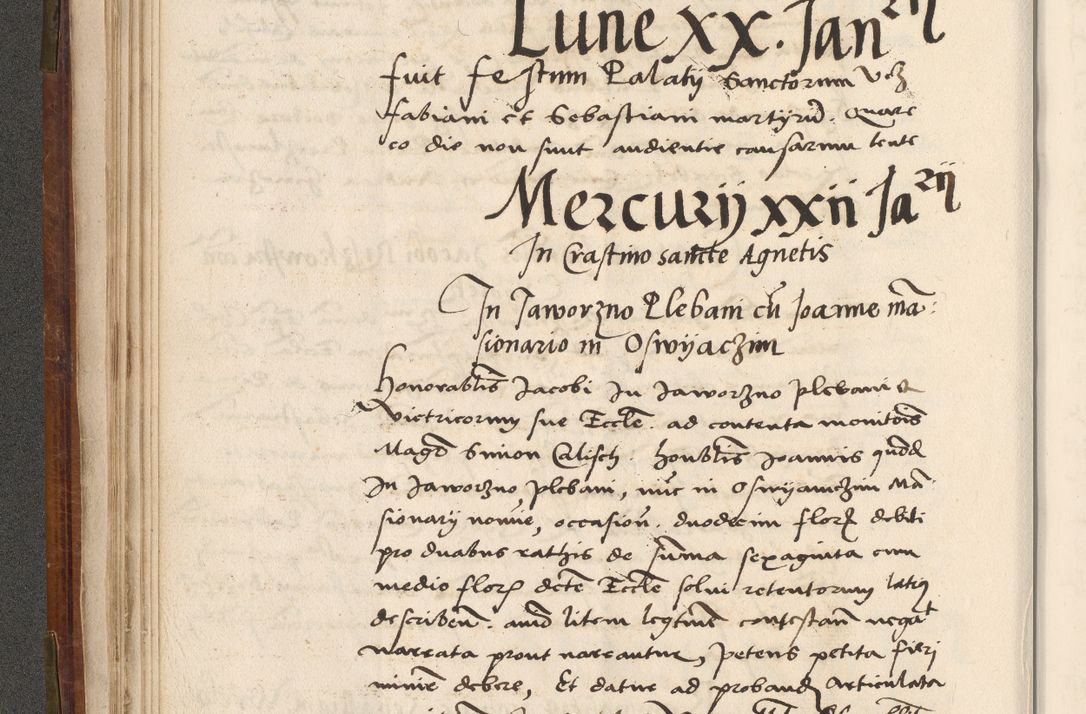 Lune xx. Jan rii
fuit festum Palatij Sanctorum vcz
fabiani et Sebastiani martyrum. Quare
eo die non sunt audientie causarum tente
Mercurij xxii Jarii
In Crastino sancte Agnetis
In Jaworzno Plebani cum Joanne ma:
sionario in Oswijaczim
Honorablis Jacobi In Jaworzno plebani et
victricorum sue Eccle. ad contenta monitois
Magd Simon Calisch honblis Joannis qudd
In Jaworzno plebani, nuc in Oswyanczim Ma
sionarij nomie, occasion. duodecim flor debiti
pro duabus rathis de summa sexaginta cum
medio flor dcte Eccle solui retentorum latius
describen. animo litem legtime contestan negat
narrata prout narrantur, petens petita fieri
minime debere, Et datur ad proband articulata